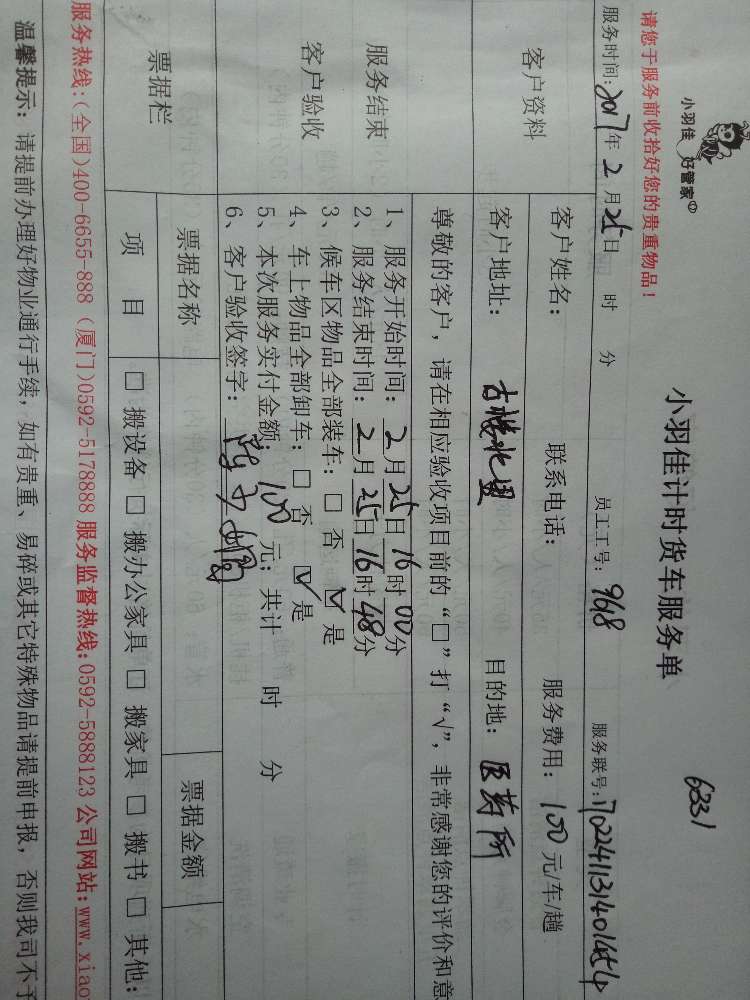 小羽佳 好管家
6331
小羽佳计时货车服务单
请您于服务前收拾好您的贵重物品！
服务时间：2017年2月25日 时 分 员工工号：968 服务联号：
客户资料
客户姓名： 联系电话： 服务费用：100元/车/趟
客户地址： 目的地：医药所
服务结束
客户验收
尊敬的客户，请在相应验收项目前的“□”打“√”，非常感谢您的评价和意
1、服务开始时间：2月25日16时00分
2、服务结束时间：2月25日16时48分
3、候车区物品全部装车：□ 否 ☑ 是
4、车上物品全部卸车：□ 否 ☑ 是
5、本次服务实付金额：100元；共计 时 分
6、客户验收签字：
票据栏
票据名称 票据金额
项 目 □ 搬设备 □ 搬办公家具 □ 搬家具 □ 搬书 □ 其他：
服务热线：(全国)400-6655-888 (厦门)0592-5178888 服务监督热线：0592-5888123 公司网站：www.xiao
温馨提示：请提前办理好物业通行手续，如有贵重、易碎或其它特殊物品请提前申报，否则我司不予